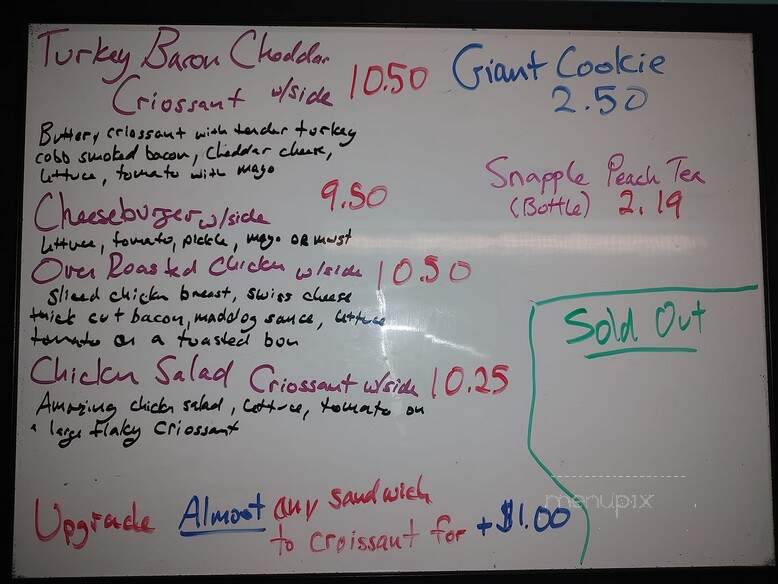 Turkey Bacon Cheddar
Criossant w/side 10.50
Buttery criossant with tender turkey
cobb smoked bacon, Cheddar cheese,
lettuce, tomato with mayo
Cheeseburger w/side 9.50
lettuce, tomato, pickle, mayo OR must
Oven Roasted Chickn w/side 10.50
Sliced chickn breast, swiss cheese
thick cut bacon, maddog sauce, lettuce
tomato on a toasted bun
Chickn Salad Criossant w/side 10.25
Amazing chickn salad, lettuce, tomato on
a large flaky Criossant
Upgrade Almost any sandwich
to croissant for +$1.00
Giant Cookie
2.50
Snapple Peach Tea
(Bottle) 2.19
Sold Out
menupix